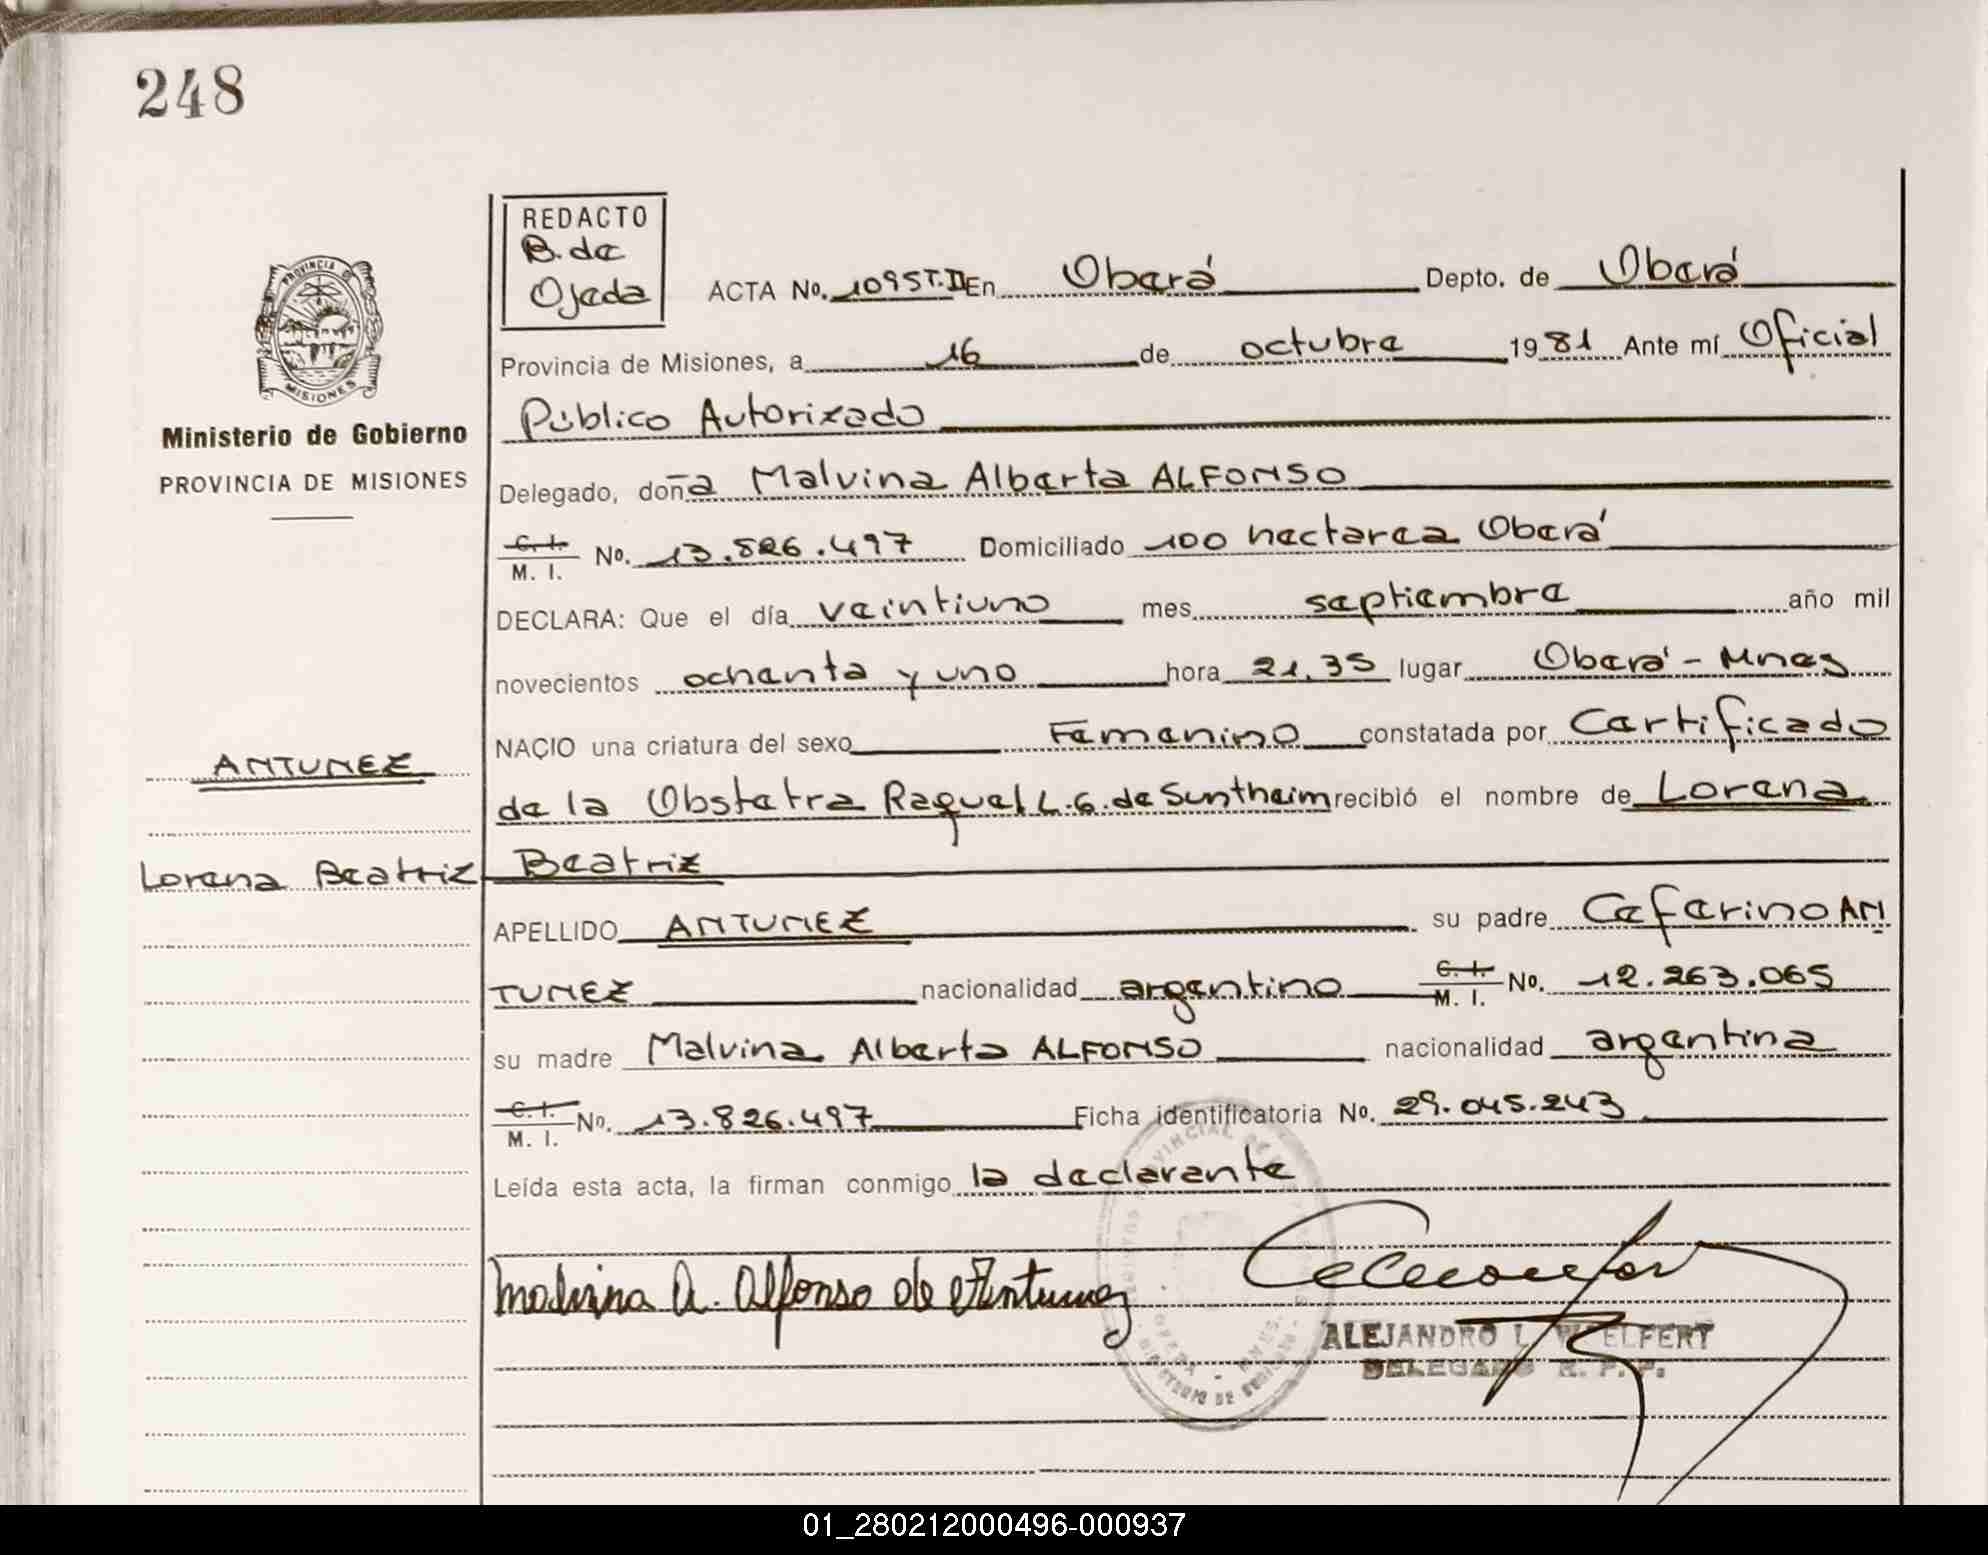 248
REDACTO
B. de
Ojeda
ACTA No. 1095T.II En Oberá Depto. de Oberá
Provincia de Misiones, a 16 de octubre 1981 Ante mí Oficial
Público Autorizado
Ministerio de Gobierno
PROVINCIA DE MISIONES
Delegado, doña Malvina Alberta ALFONSO
C. I. M. I. No. 13.826.497 Domiciliado 100 hectarea Oberá
DECLARA: Que el día veintiuno mes septiembre año mil
novecientos ochenta y uno hora 21,35 lugar Oberá - Mnes
NACIO una criatura del sexo Femenino constatada por Certificado
ANTUNEZ
de la Obstetra Raquel L. G. de Suntheim recibió el nombre de Lorena
Lorena Beatriz
Beatriz
APELLIDO ANTUNEZ su padre Ceferino AN
TUNEZ nacionalidad argentino C. I. M. I. No. 12.263.065
su madre Malvina Alberta ALFONSO nacionalidad argentina
C. I. M. I. No. 13.826.497 Ficha identificatoria No. 29.045.243
Leída esta acta, la firman conmigo la declarante
Malvina A. Alfonso de Antunez
ALEJANDRO L. WELFERT
DELEGADO R. P. P.
01_280212000496-000937